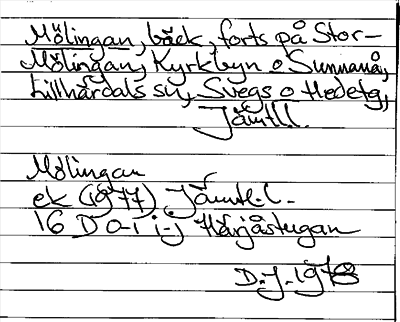 Mölingan, bäck, forts på Stor-
Mölingan, Kyrkbyn o Sunnanå,
Lillhärdals sn, Svegs o Hedetg,
Jämtl.l.
Mölingan
ek (1977) Jämtl.l.
16 D 0-1 i-j Härjåstugan
D.J. 1978